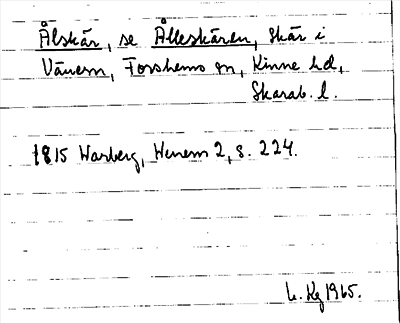 Ålskär, se Ålleskären, skär i
Vänern, Forshems sn, Kinne hd,
Skarab. l.
1815 Warberg, Wenern 2, s. 224.
1965.